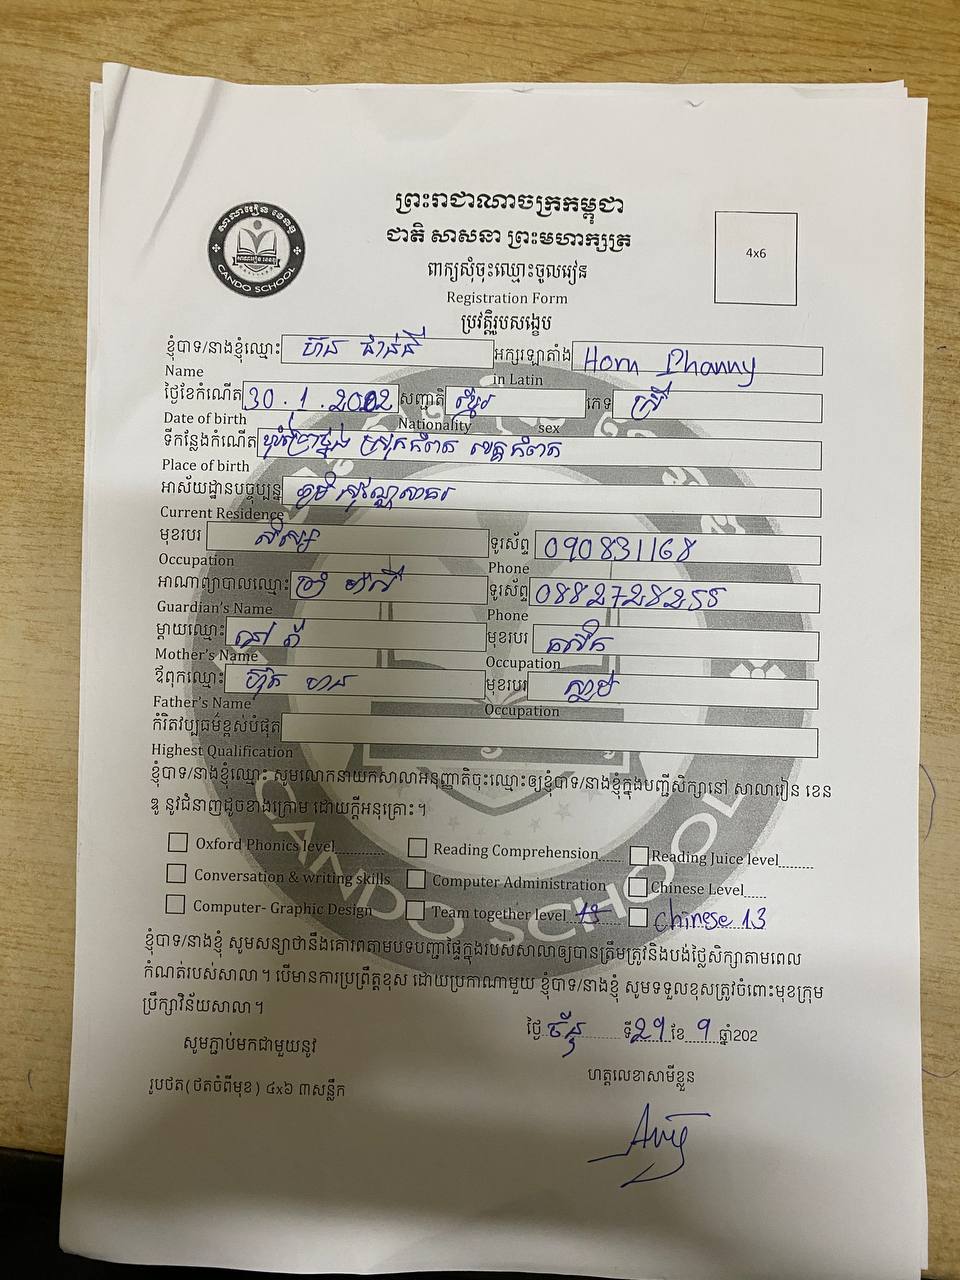 សាលារៀន ខេនឌូ
CANDO SCHOOL
ព្រះរាជាណាចក្រកម្ពុជា
ជាតិ សាសនា ព្រះមហាក្សត្រ
ពាក្យសុំចុះឈ្មោះចូលរៀន
Registration Form
ប្រវត្តិរូបសង្ខេប
4x6
ខ្ញុំបាទ/នាងខ្ញុំឈ្មោះ ហន ផាន់នី អក្សរឡាតាំង Horn Phanny
Name in Latin
ថ្ងៃខែកំណើត 30.1.2002 សញ្ជាតិ ខ្មែរ ភេទ ស្រី
Date of birth Nationality sex
ទីកន្លែងកំណើត ស្រុកកំពត ខេត្តកំពត
Place of birth
អាស័យដ្ឋានបច្ចុប្បន្ន ភូមិ សុវណ្ណសាគរ
Current Residence
មុខរបរ សិស្ស ទូរស័ព្ទ 090831168
Occupation Phone
អាណាព្យាបាលឈ្មោះ ទូរស័ព្ទ 0882728258
Guardian's Name Phone
ម្តាយឈ្មោះ មុខរបរ
Mother's Name Occupation
ឪពុកឈ្មោះ មុខរបរ ស្លាប់
Father's Name Occupation
កំរិតវប្បធម៌ខ្ពស់បំផុត
Highest Qualification
ខ្ញុំបាទ/នាងខ្ញុំឈ្មោះ សូមលោកនាយកសាលាអនុញ្ញាតិចុះឈ្មោះឲ្យខ្ញុំបាទ/នាងខ្ញុំក្នុងបញ្ជីសិក្សានៅ សាលារៀន ខេន
ឌូ នូវជំនាញដូចខាងក្រោម ដោយក្តីអនុគ្រោះ។
Oxford Phonics level Reading Comprehension Reading Juice level
Conversation & writing skills Computer Administration Chinese Level
Computer- Graphic Design Team together level Chinese 13
ខ្ញុំបាទ/នាងខ្ញុំ សូមសន្យាថានឹងគោរពតាមបទបញ្ជាផ្ទៃក្នុងរបស់សាលាឲ្យបានត្រឹមត្រូវនិងបង់ថ្លៃសិក្សាតាមពេល
កំណត់របស់សាលា។ បើមានការប្រព្រឹត្តខុស ដោយប្រកាណាមួយ ខ្ញុំបាទ/នាងខ្ញុំ សូមទទួលខុសត្រូវចំពោះមុខក្រុម
ប្រឹក្សាវិន័យសាលា។
ថ្ងៃ ច័ន្ទ ទី 29 ខែ 9 ឆ្នាំ202
សូមភ្ជាប់មកជាមួយនូវ
ហត្ថលេខាសាមីខ្លួន
រូបថត(ថតចំពីមុខ) ៤x៦ ៣សន្លឹក